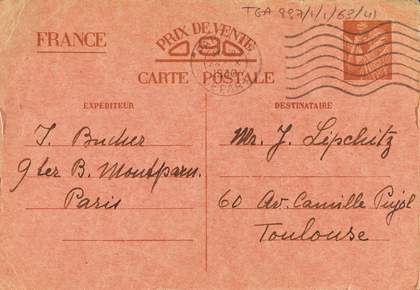 TGA 897/1/1/63/41
FRANCE
PRIX DE VENTE
90
CARTE POSTALE
EXPÉDITEUR
DESTINATAIRE
J. Bucher
9 ter B. Montparn.
Paris
Mr. J. Lipschitz
60 Av. Camille Pujol
Toulouse